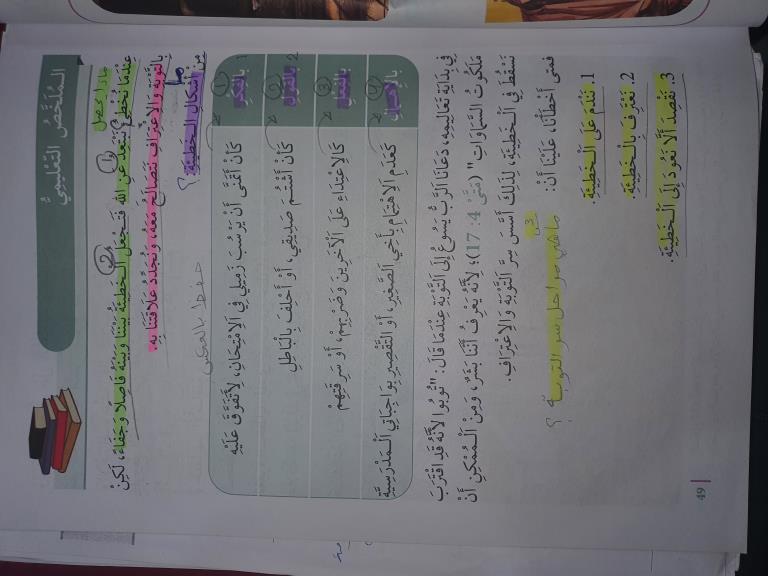 الْمُلَخَّصُ التَّعْلِيمِيُّ
ماذا يحصل
عِنْدَمَا نُخْطِئُ نَبْتَعِدُ عَنِ اللهِ فَتَجْعَلُ الْخَطِيئَةُ بَيْنَنَا وَبَيْنَهُ فَاصِلًا وَجَفَاءً، لَكِنْ
بِالتَّوْبَةِ وَالِاعْتِرَافِ نَتَصَالَحُ مَعَهُ، وَنُجَدِّدُ عَلَاقَتَنَا بِهِ.
ما
مِنْ أَشْكَالِ الْخَطِيئَةِ: ؟
حفظ بالعكس
1 بِالْفِكْرِ كَأَنْ أَتَمَنَّى أَنْ يَرْسُبَ زَمِيلِي فِي الِامْتِحَانِ، لِأَتَفَوَّقَ عَلَيْهِ
2 بِالْقَوْلِ كَأَنْ أَشْتُمَ صَدِيقِي، أَوْ أَحْلِفَ بِالْبَاطِلِ
3 بِالْفِعْلِ كَالِاعْتِدَاءِ عَلَى الْآخَرِينَ وَضَرْبِهِمْ، أَوْ سَرِقَتِهِمْ
4 بِالْإِهْمَالِ كَعَدَمِ الِاهْتِمَامِ بِأَخِي الصَّغِيرِ، أَوِ التَّقْصِيرِ بِوَاجِبَاتِي الْمَدْرَسِيَّةِ
فِي بِدَايَةِ تَعَالِيمِهِ، دَعَانَا الرَّبُّ يَسُوعُ إِلَى التَّوْبَةِ عِنْدَمَا قَالَ: "تُوبُوا لِأَنَّهُ قَدِ اقْتَرَبَ
مَلَكُوتُ السَّمَاوَاتِ" (مَتَّى 4: 17)؛ لِأَنَّهُ يَعْرِفُ أَنَّنَا بَشَرٌ، وَمِنَ الْمُمْكِنِ أَنْ
نَسْقُطَ فِي الْخَطِيئَةِ، لِذَلِكَ أَسَّسَ سِرَّ التَّوْبَةِ وَالِاعْتِرَافِ.
ما هي مراحل سر التوبة ؟
فَمَتَى أَخْطَأْنَا، عَلَيْنَا أَنْ:
1. نَنْدَمَ عَلَى الْخَطِيئَةِ.
2. نَعْتَرِفَ بِالْخَطِيئَةِ.
3. نَقْصِدَ أَلَّا نَعُودَ إِلَى الْخَطِيئَةِ.
49